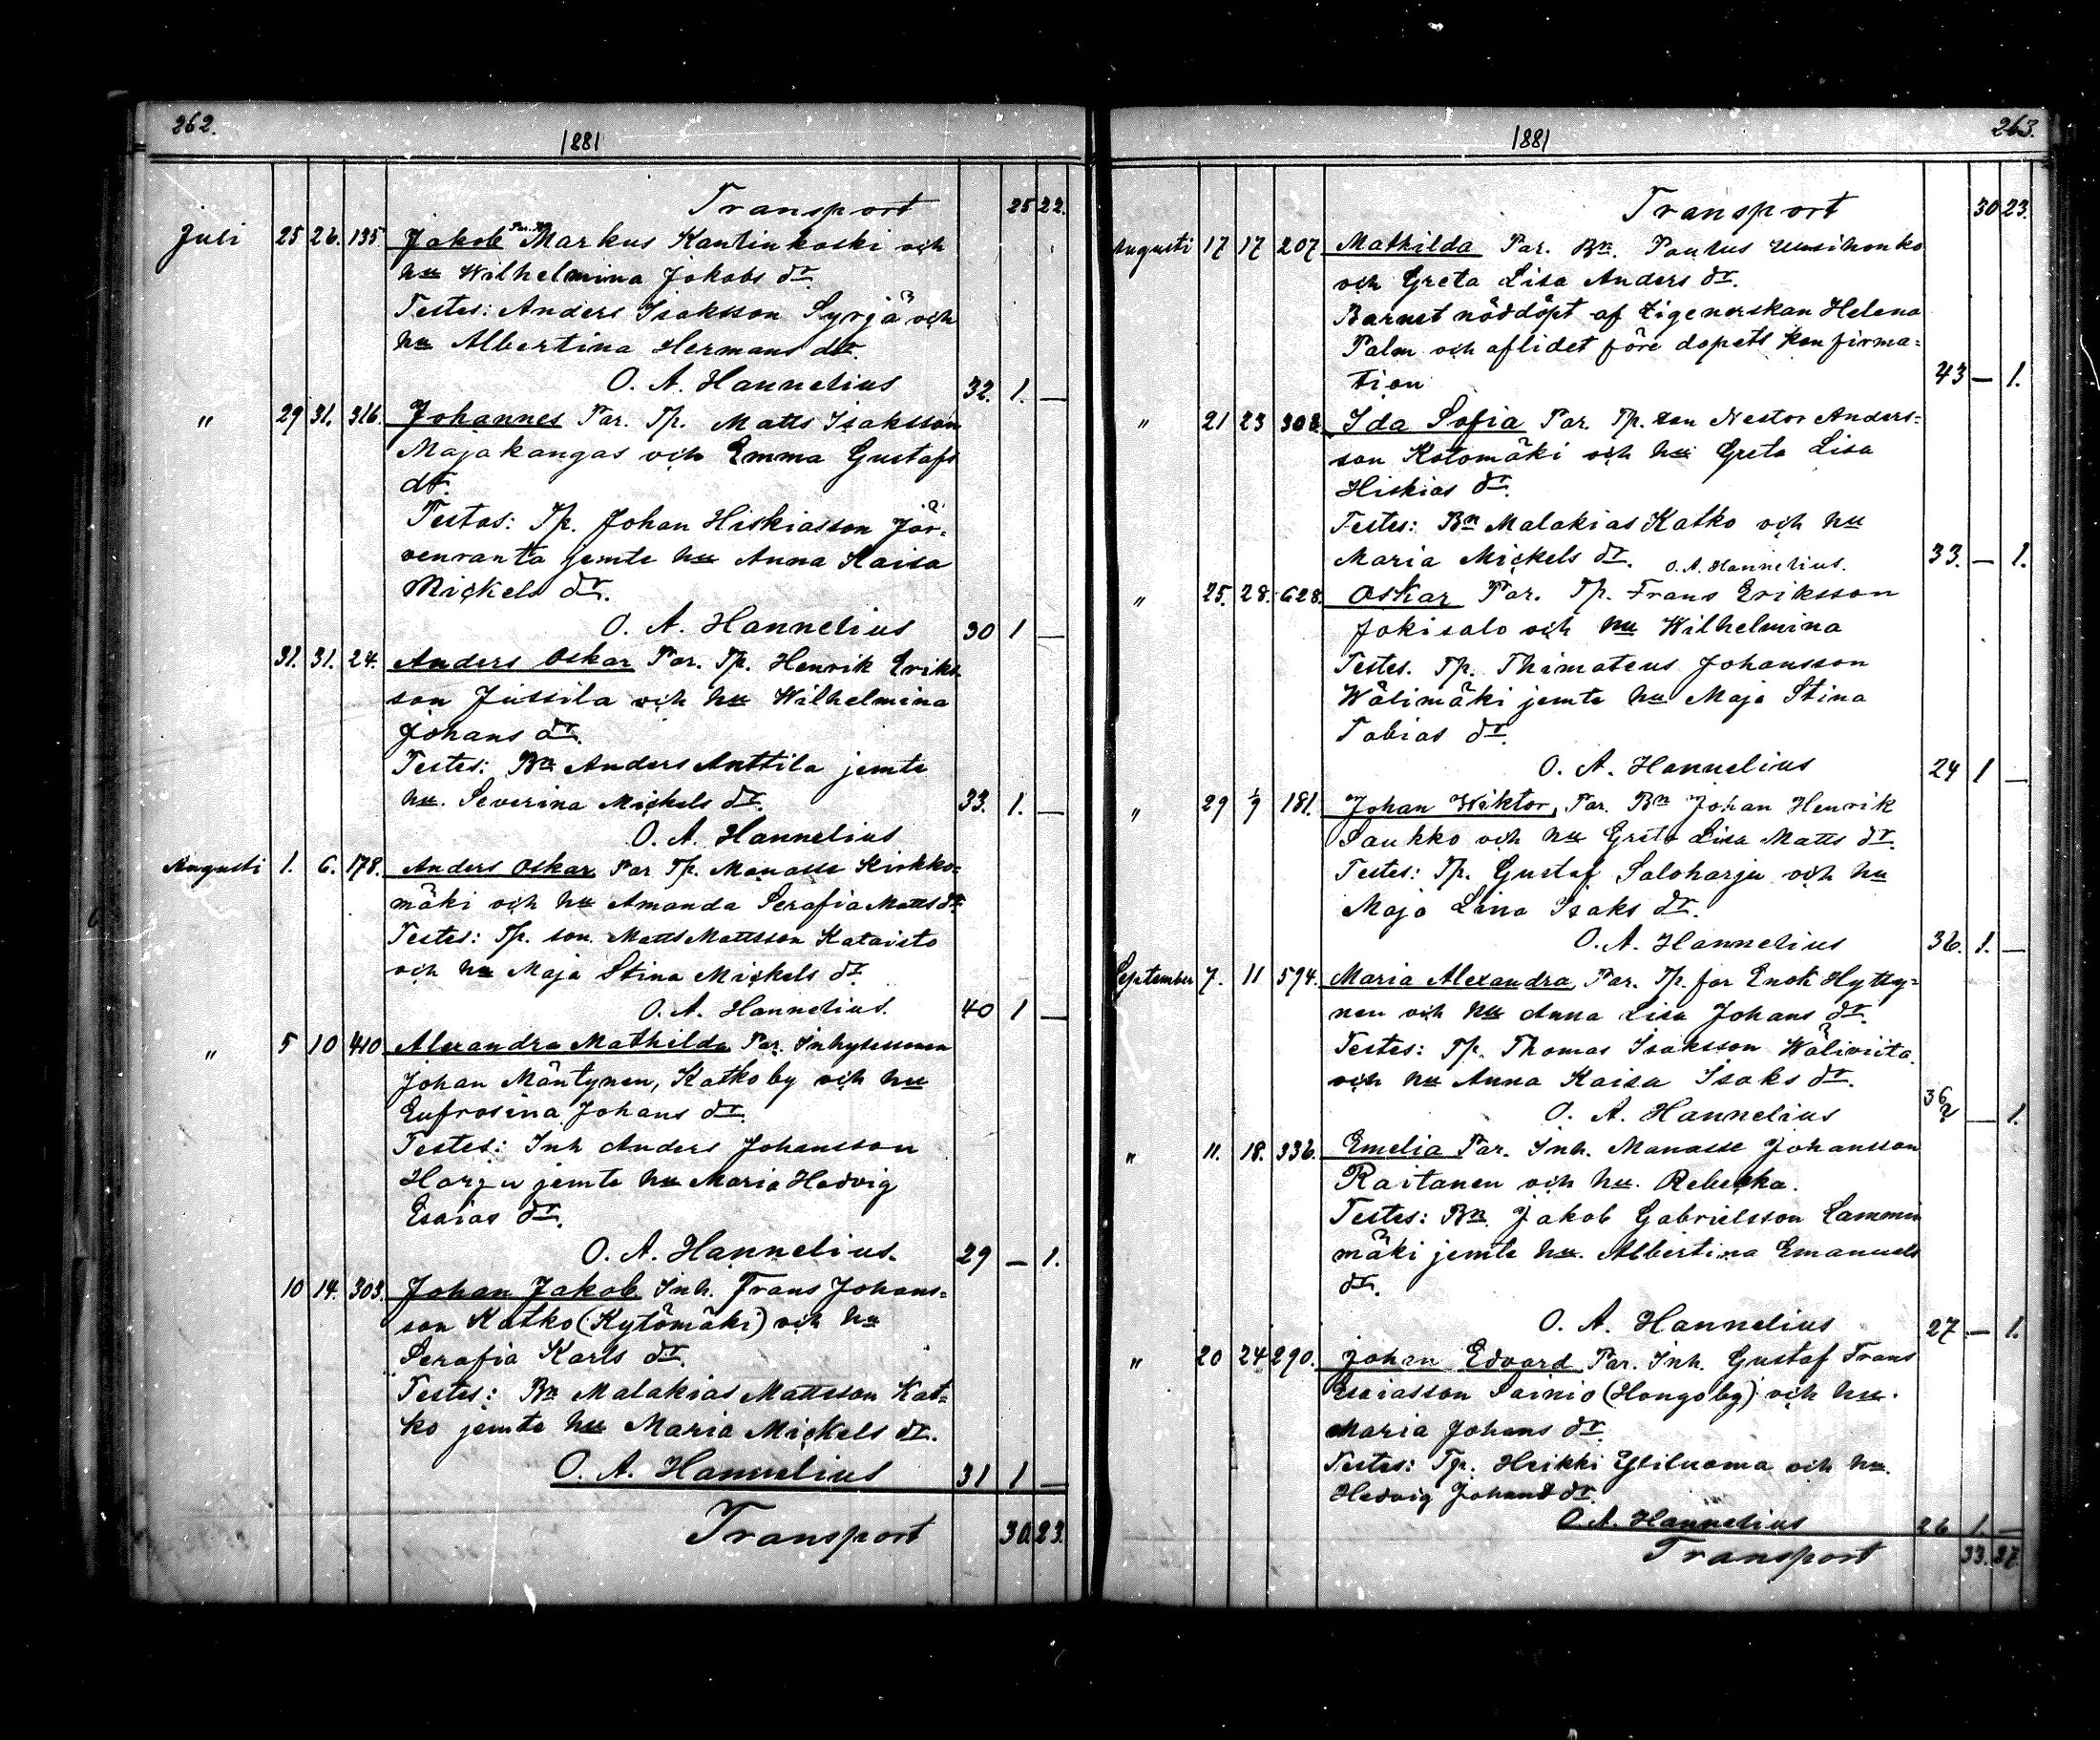 262.
1881
Transport 25 22.
Juli 25 26. 135. Jakob Par. Markus Kantinkoski och
hu Wilhelmina Jakobs dr.
Testes: Anders Isaksson Syrjä och
hu Albertina Hermans dr.
O. A. Hannelius 32. 1. —
" 29 31. 316. Johannes Par. Tp. Matts Isaksson
Majakangas och Emma Gustafs
dr.
Testes: Tp. Johan Hiskiasson Jär-
venranta jemte hu Anna Kaisa
Mickels dr.
O. A. Hannelius 30 1 —
31. 31. 24. Anders Oskar Par. Tp. Henrik Eriks
son Jussila och hu Wilhelmina
Johans dr.
Testes: Bn Anders Anttila jemte
hu. Severina Mickels dr. 33. 1. —
O. A. Hannelius
Augusti 1. 6. 178. Anders Oskar Par Tp. Manasse Kirkko-
mäki och hu Amanda Serafia Matts dr.
Testes: Tp. son Matts Mattsson Kataisto
och hu Maja Stina Mickels dr.
O. A. Hannelius. 40 1 —
" 5 10 410 Alexandra Mathilda Par. Inhysesman
Johan Mäntynen, Katko by och hu
Eufrosina Johans dr.
Testes: Inh Anders Johansson
Harju jemte hu Maria Hedvig
Esaias dr.
O. A. Hannelius. 29 — 1.
10 14. 303. Johan Jakob Inh. Frans Johans-
son Katko (Kytömäki) och hu
Serafia Karls dr.
Testes: Bn Malakias Mattsson Kat-
ko jemte hu Maria Mickels dr.
O. A. Hannelius 31 1 —
Transport 30. 23.
263.
1881
Transport 30 23.
Augusti 17 17 207 Mathilda Par. Bn. Paulus Uusihonko
och Greta Lisa Anders dr.
Barnet nöddöpt af Zigenerskan Helena
Palm och aflidet före dopets konfirma-
tion 43 — 1.
" 21 23 303. Ida Sofia Par. Tp. son Nestor Anders-
son Kotomäki och hu Greta Lisa
Hiskias dr.
Testes: Bn Malakias Katko och hu
Maria Mickels dr. O. A. Hannelius. 33. — 1.
" 25. 28. 628. Oskar Par. Tp. Frans Eriksson
Jokisalo och hu Wilhelmina
Testes. Tp. Thimateus Johansson
Wälimäki jemte hu Maja Stina
Tobias dr.
O. A. Hannelius 24 1 —
" 29 1/9 181. Johan Wiktor, Par. Bn Johan Henrik
Saukko och hu Greta Lisa Matts dr.
Testes: Tp. Gustaf Saloharju och hu
Maja Lina Isaks dr.
O. A. Hannelius 36. 1. —
September 7. 11 594. Maria Alexandra, Par. Tp. far Enok Hytty-
nen och hu Anna Lisa Johans dr.
Testes: Tp. Thomas Isaksson Wäliviita
och hu Anna Kaisa Isaks dr.
O. A. Hannelius 36 — 1.
" 11. 18. 336. Emelia Par. Inh. Manasse Johansson
Raitanen och hu. Rebecka.
Testes: Bn. Jakob Gabrielsson Lammin
mäki jemte hu. Albertina Emanuels
dr.
O. A. Hannelius 27 — 1.
" 20 24 290. Johan Edvard Par. Inh. Gustaf Frans
Esaiasson Sainio (Hongo by) och hu.
Maria Johans dr.
Testes: Tp. Heikki Yliluoma och hu.
Hedvig Johans dr.
O. A. Hannelius 26 1. —
Transport 33. 27.